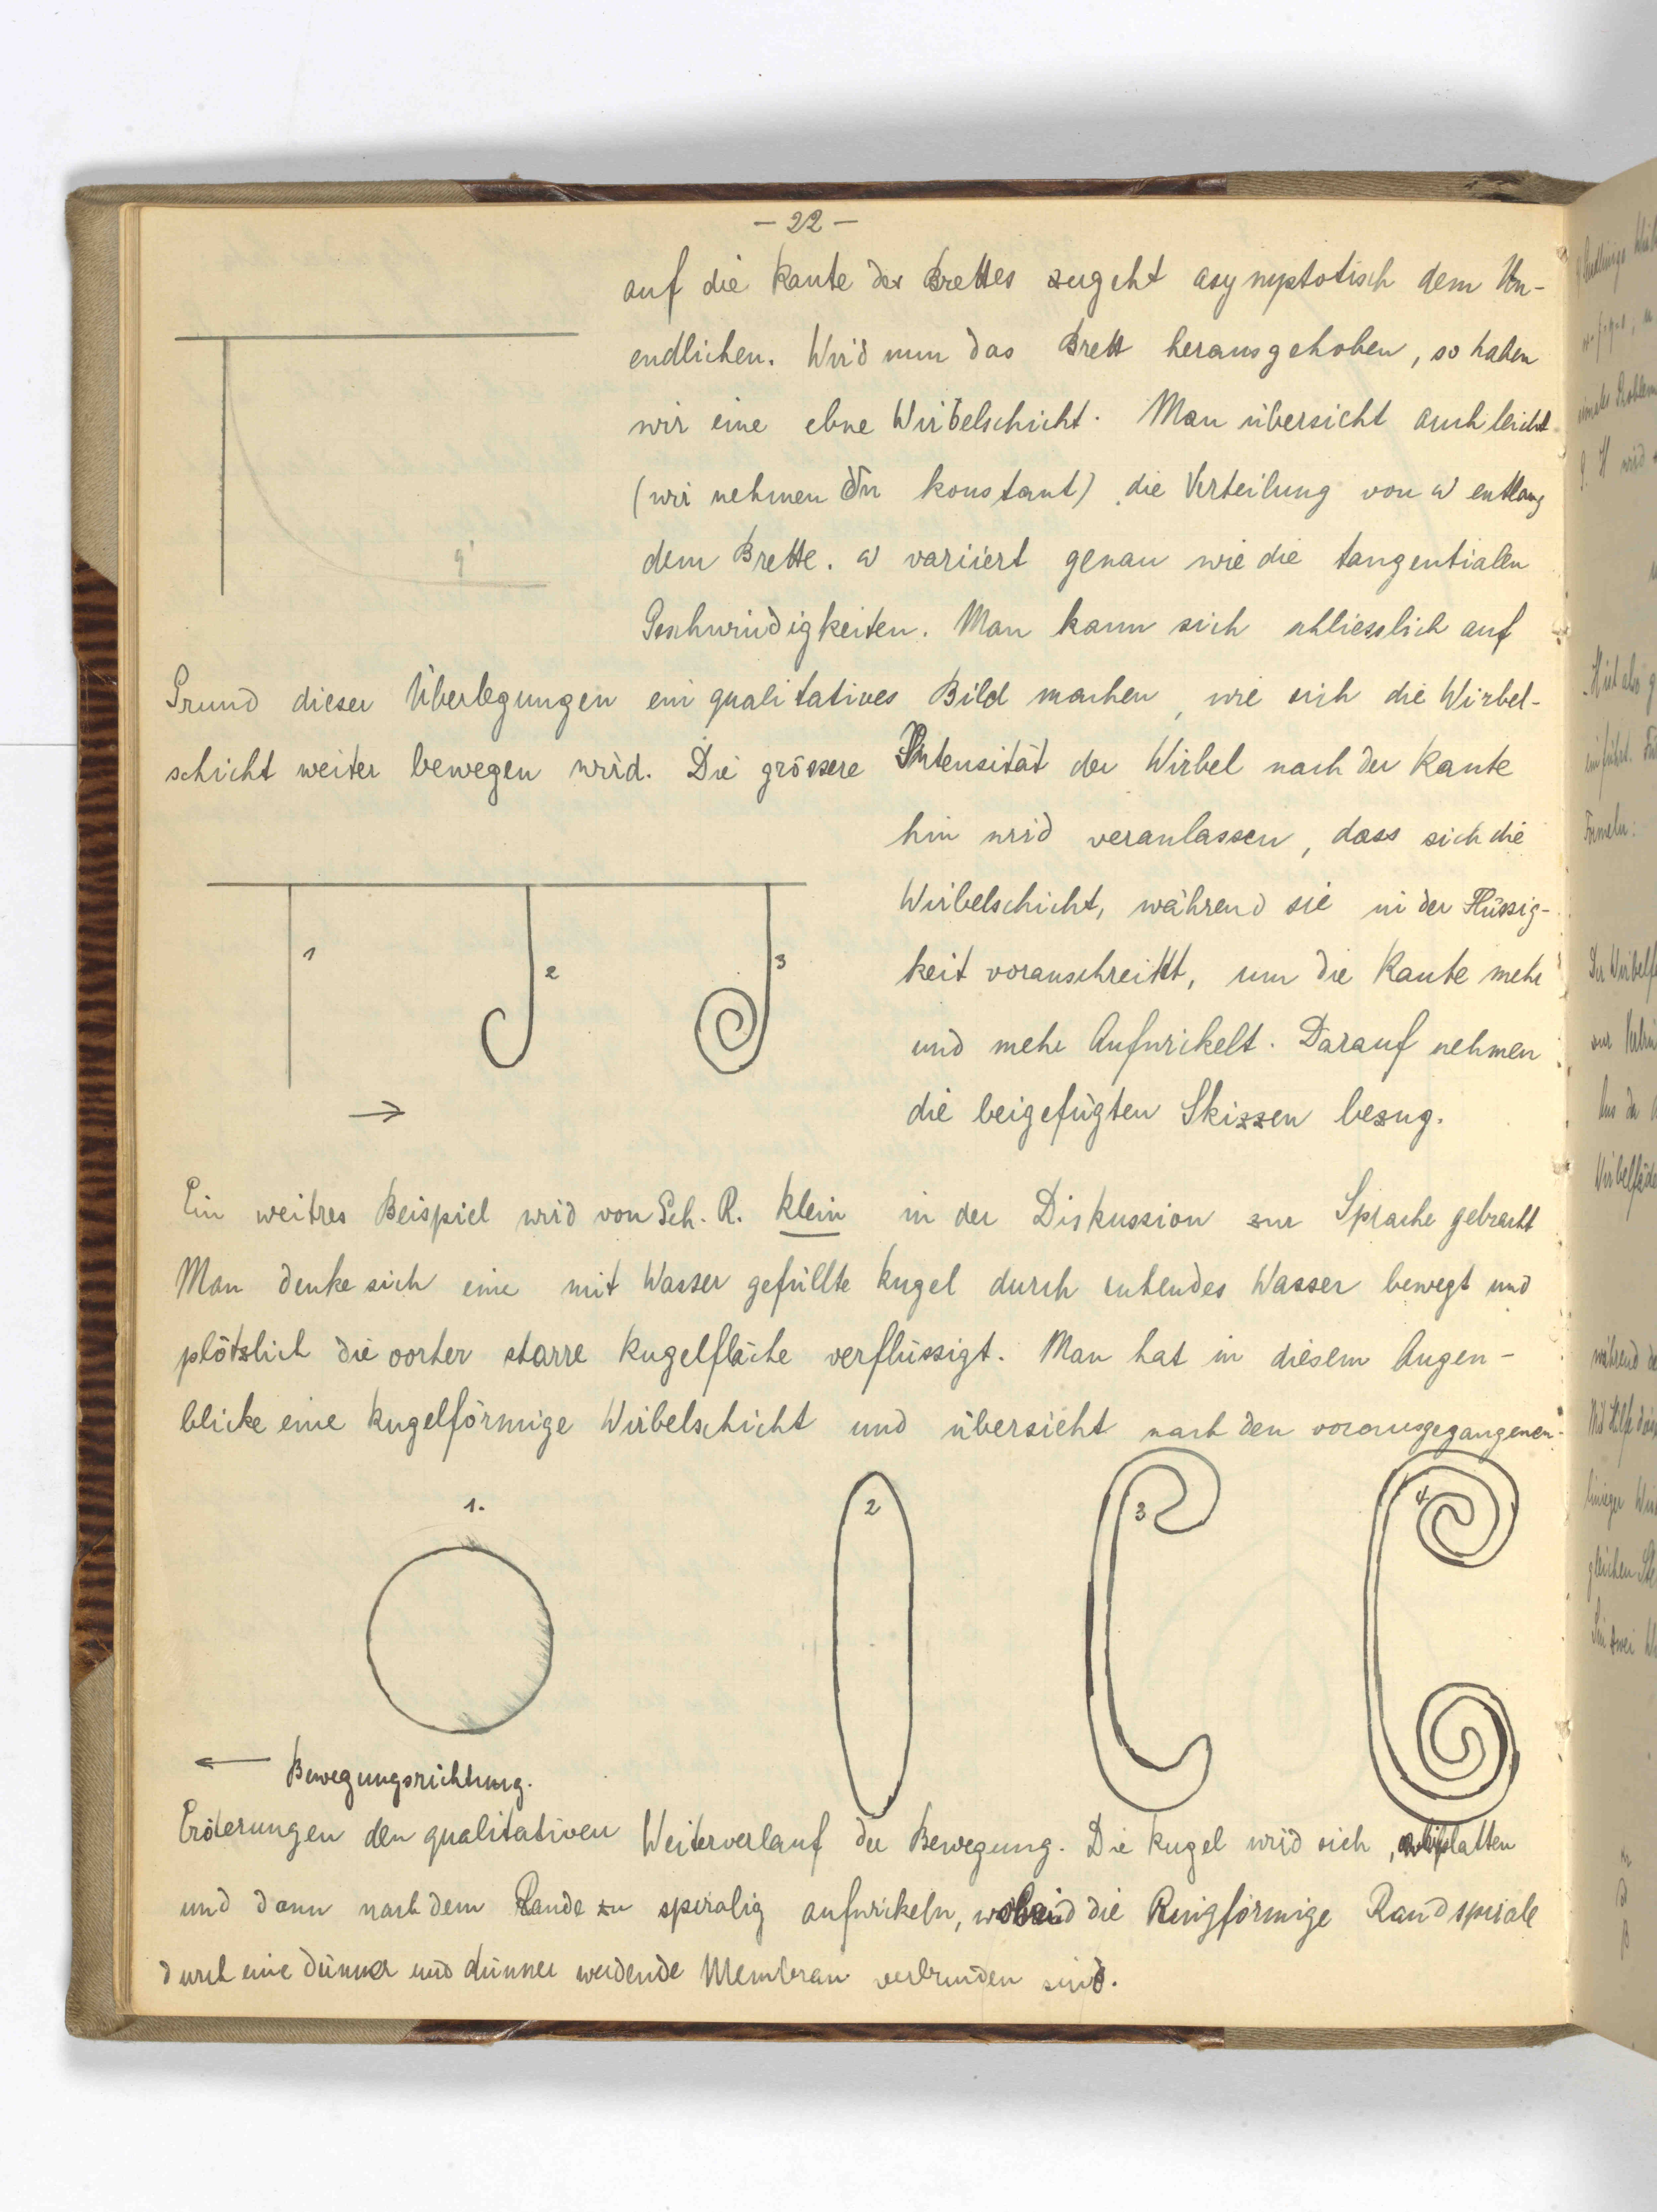 - 22 -
auf die Kante des Brettes zugeht asymptotisch dem Un-
endlichen. Wird nun das Brett herausgehoben, so haben
wir eine ebne Wirbelschicht. Man übersieht auch leicht
(wir nehmen δn konstant) die Verteilung von ω entlang
dem Brette. ω variiert genau wie die tangentialen
q'
Geschwindigkeiten. Man kann sich schliesslich auf
Grund dieser Überlegungen ein qualitatives Bild machen, wie sich die Wirbel-
schicht weiter bewegen wird. Die grössere Intensität der Wirbel nach der Kante
hin wird veranlassen, dass sich die
Wirbelschicht, während sie in der Flüssig-
1 2 3
keit voranschreitet, um die Kante mehr
und mehr Aufwickelt. Darauf nehmen
die beigefügten Skizzen bezug.
Ein weitres Beispiel wird von Geh. R. Klein in der Diskussion zur Sprache gebracht
Man denke sich eine mit Wasser gefüllte Kugel durch ruhendes Wasser bewegt und
plötzlich die vorher starre Kugelfläche verflüssigt. Man hat in diesem Augen-
blicke eine kugelförmige Wirbelschicht und übersieht nach den vorausgegangenen
1. 2 3 4
Bewegungsrichtung.
Eröterungen den qualitativen Weiterverlauf der Bewegung. Die Kugel wird sich, abplatten
und dann nach dem Rande zu spiralig aufwickeln, die Ringförmige Randspirale
durch eine dünner und dünner werdende Membran verbunden sind.